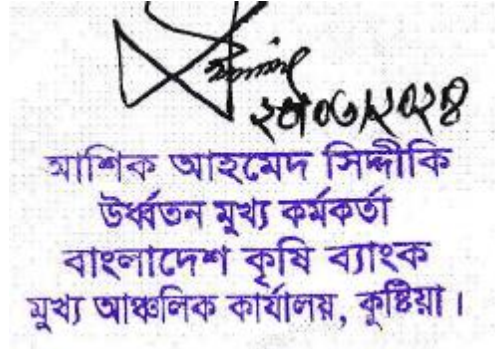 ২০২৪
আশিক আহমেদ সিদ্দীকি
উর্ধ্বতন মুখ্য কর্মকর্তা
বাংলাদেশ কৃষি ব্যাংক
মুখ্য আঞ্চলিক কার্যালয়, কুষ্টিয়া।